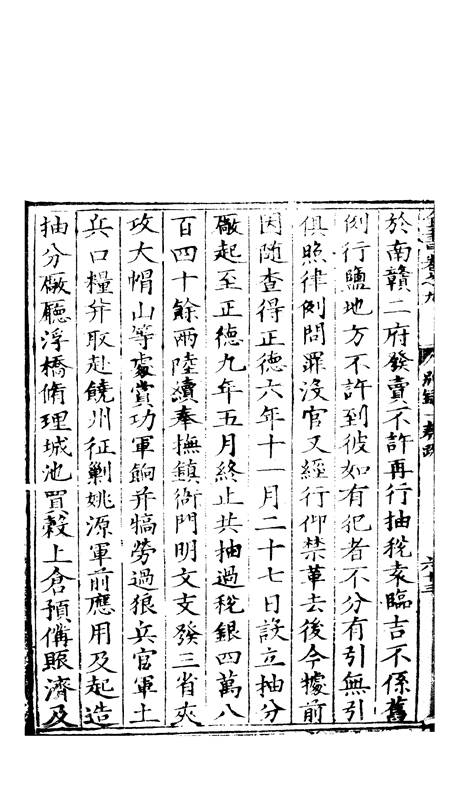 於南贛二府發賣不許再行抽稅袁臨吉不係舊
例行鹽地方不許到彼如有犯者不分有引無引
俱照律例問罪沒官又經行仰禁革去後今據前
因隨查得正德六年十一月二十七日設立抽分
廠起至正德九年五月終止共抽過稅銀四萬八
百四十餘兩陸續奉撫鎮衙門明文支發三省夾
攻大帽山等處賞功軍餉并犒勞過狼兵官軍土
兵口糧并取赴饒州征剿姚源軍前應用及起造
抽分廠廳浮橋脩理城池買穀上倉預備賑濟及